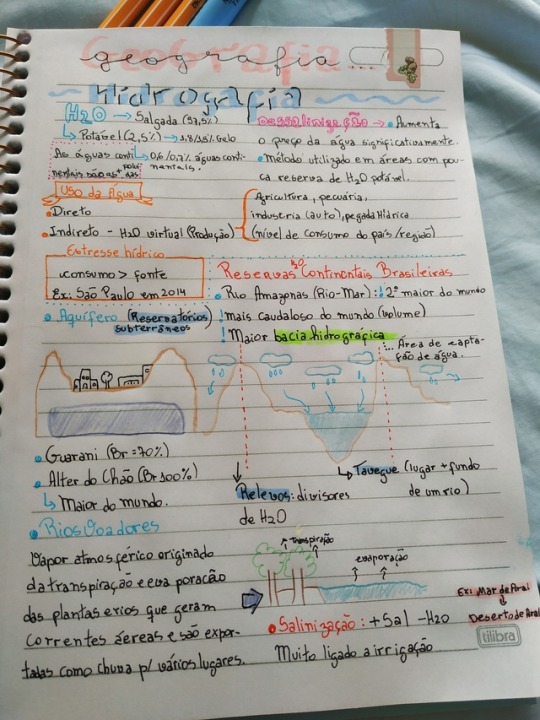 Geografia...
geografia
Hidrografia
H2O → Salgada (97,5%)
↳ Potável (2,5%) → 1,8/1,9% Gelo
↳ 0,6/0,7% águas continentais.
As águas continentais são as + poluídas
Uso da Água
• Direto
• Indireto - H2O virtual (Produção)
Agricultura, pecuária,
industria (auto), pegada Hidrica
(nível de consumo do país/região)
Dessalinização → • Aumenta
o preço da água significativamente.
• Método utilizado em áreas com pou-
ca reserva de H2O potável.
Estresse hídrico
consumo > fonte
Ex: São Paulo em 2014
Reservas H2O Continentais Brasileiras
• Rio Amazonas (Rio-Mar): ! 2º maior do mundo
! mais caudaloso do mundo (volume)
! Maior bacia hidrográfica
... Área de capta-
ção de água.
• Aquífero (Reservatórios
subterrâneos)
• Guarani (Br = 70%)
• Alter do Chão (Br 100%)
↳ Maior do mundo.
Relevos: divisores
de H2O
↳ Tavegue (lugar + fundo
de um rio)
• Rios Voadores
Vapor atmosférico originado
da transpiração e eva poracão
das plantas e rios que geram
correntes áereas e são expor-
tadas como chuva p/ vários lugares.
transpiração
evaporação
• Salinização: + Sal - H2O
Muito ligado a irrigação
Ex: Mar de Aral
Deserto de Aral
tilibra